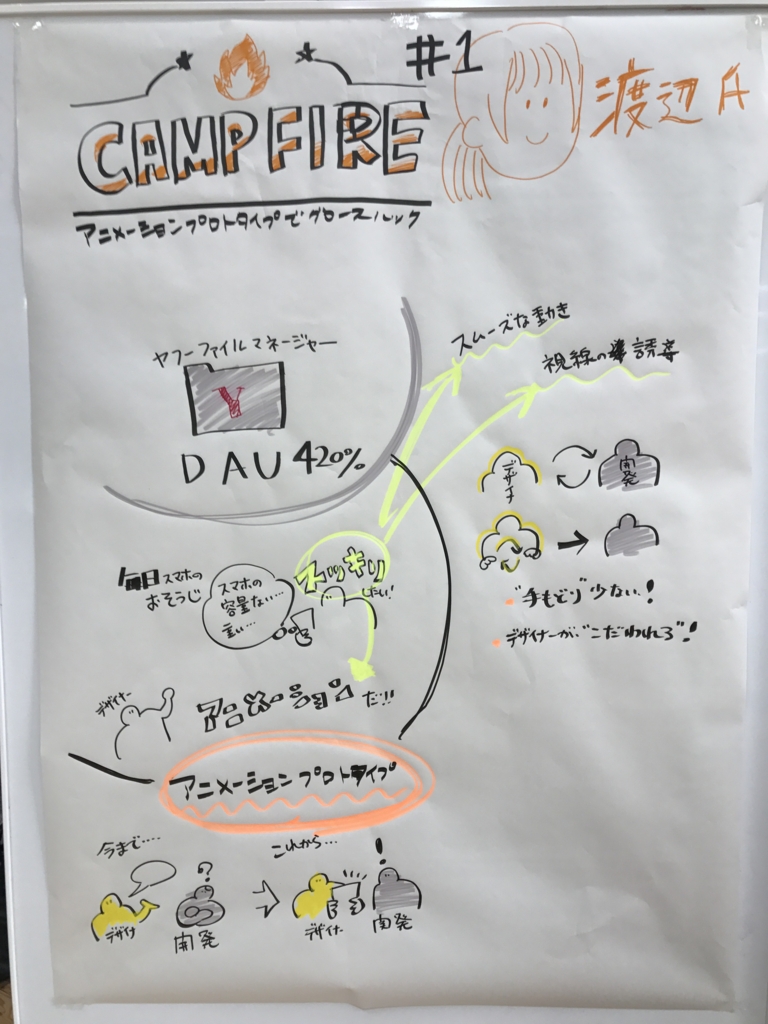 #1
CAMPFIRE
渡辺
アニメーションプロトタイプでグロースハック
ヤフーファイルマネージャー
Y
DAU 420%
スムーズな動き
視線の誘導
デザイナ
開発
毎日スマホの
おそうじ
スマホの
容量ない…
重い…
スッキリ
したい!
"手もどり"少ない!
デザイナーが"こだわれる"!
デザイナー
アニメーションだ!!
アニメーションプロトタイプ
今まで….
これから…
?
!
デザイナ
開発
デザイナー
開発